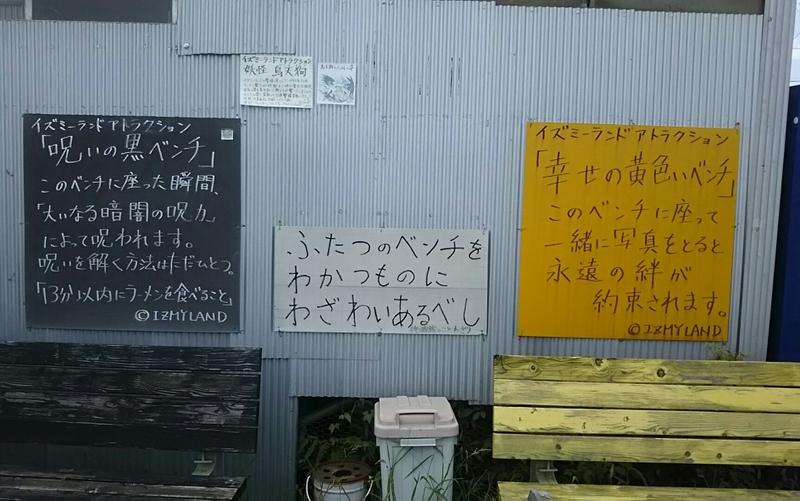 イズミーランドアトラクション
妖怪 烏天狗
イズミーランドアトラクション
「呪いの黒ベンチ」
このベンチに座った瞬間、
「大いなる暗闇の呪力」
によって呪われます。
呪いを解く方法はただひとつ。
「3分以内にラーメンを食べること」
©IZMYLAND
ふたつのベンチを
わかつものに
わざわいあるべし
イズミーランドアトラクション
「幸せの黄色いベンチ」
このベンチに座って
一緒に写真をとると
永遠の絆が
約束されます。
©IZMYLAND